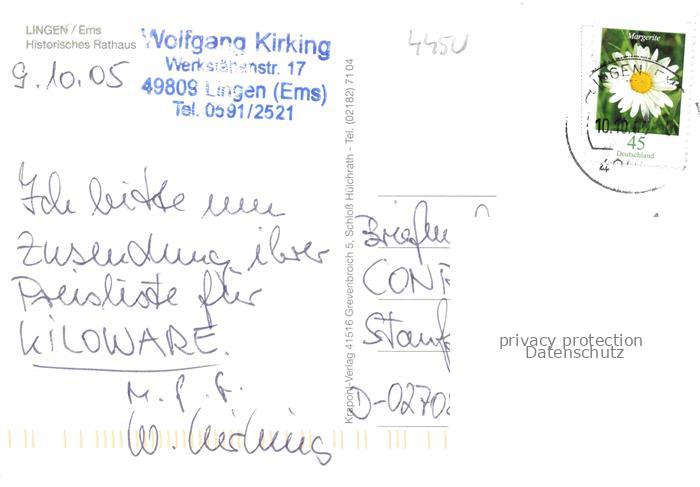 LINGEN / Ems
Historisches Rathaus
Wolfgang Kirking
Werkstättenstr. 17
49809 Lingen (Ems)
Tel. 0591/2521
9.10.05
4450
Ich bitte um
Zusendung ihrer
Preisliste für
KILOWARE.
M. f. G.
W. Kirking
Verlag 41516 Grevenbroich 5, Schloß Hülchrath - Tel. (02182) 7104
Margerite
45
Deutschland
LINGEN
10.10.
Briefm
CONF
Stauf
D-0270
privacy protection
Datenschutz